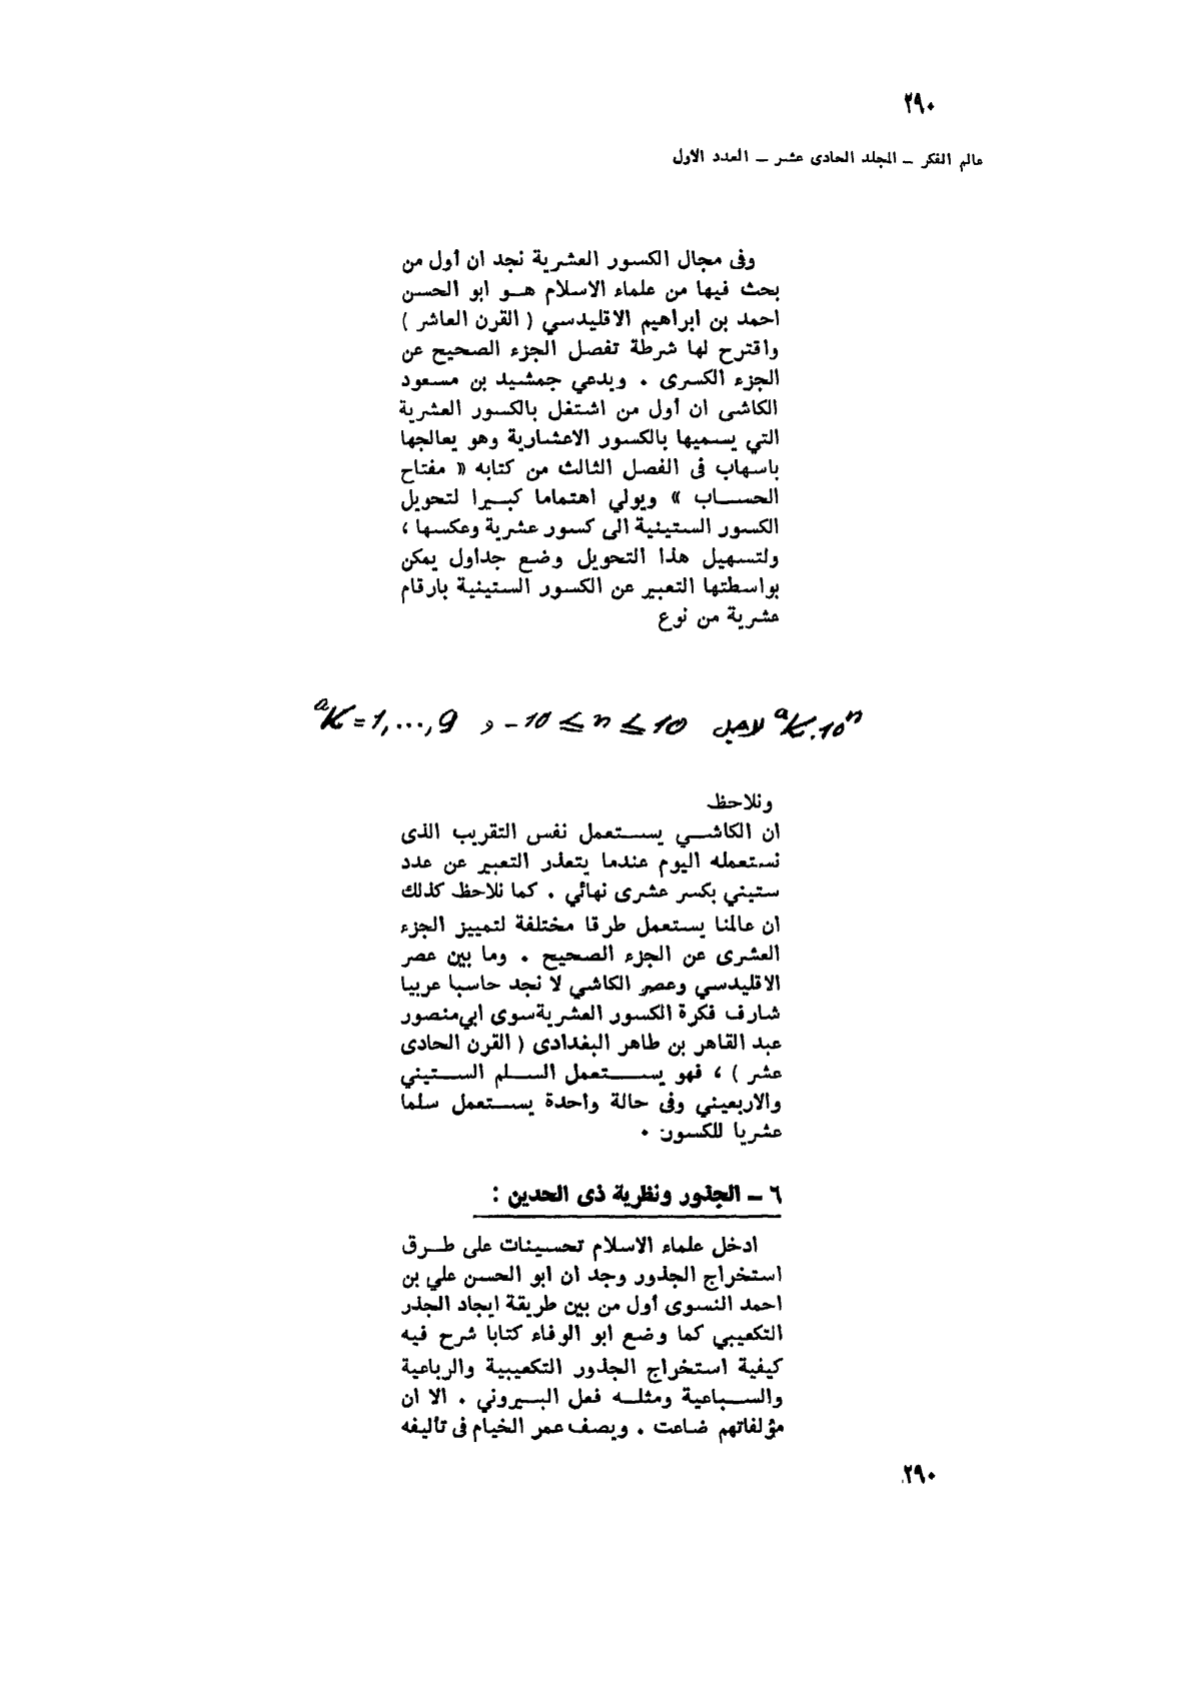 ٢٩٠
عالم الفكر – المجلد الحادى عشر – العدد الاول
وفى مجال الكسور العشرية نجد ان أول من
بحث فيها من علماء الاسلام هــو ابو الحسن
احمد بن ابراهيم الاقليدسي ( القرن العاشر )
واقترح لها شرطة تفصل الجزء الصحيح عن
الجزء الكسرى . ويدعي جمشيد بن مسعود
الكاشى ان أول من اشتغل بالكسور العشرية
التي يسميها بالكسور الاعشارية وهو يعالجها
باسهاب فى الفصل الثالث من كتابه « مفتاح
الحســـاب » ويولي اهتماما كبــيرا لتحويل
الكسور الستينية الى كسور عشرية وعكسها ،
ولتسهيل هذا التحويل وضع جداول يمكن
بواسطتها التعبير عن الكسور الستينية بارقام
عشرية من نوع
ᵃK.10ⁿ لاجل -10 ≤ n ≤ 10 و ᵃK=1,...,9
ونلاحظ
ان الكاشـــي يســـتعمل نفس التقريب الذى
نستعمله اليوم عندما يتعذر التعبير عن عدد
ستيني بكسر عشرى نهائي . كما نلاحظ كذلك
ان عالمنا يستعمل طرقا مختلفة لتمييز الجزء
العشرى عن الجزء الصحيح . وما بين عصر
الاقليدسي وعصر الكاشي لا نجد حاسبا عربيا
شارف فكرة الكسور العشرية سوى ابي منصور
عبد القاهر بن طاهر البغدادى ( القرن الحادى
عشر ) ، فهو يســـــتعمل الســـلم الســـتيني
والاربعيني وفى حالة واحدة يســـتعمل سلما
عشريا للكسور .
٦ – الجذور ونظرية ذى الحدين :
ادخل علماء الاسلام تحسينات على طــرق
استخراج الجذور وجد ان ابو الحسن علي بن
احمد النسوى أول من بين طريقة ايجاد الجذر
التكعيبي كما وضع ابو الوفاء كتابا شرح فيه
كيفية استخراج الجذور التكعيبية والرباعية
والســـباعية ومثلــه فعل البــيروني . الا ان
مؤلفاتهم ضاعت . ويصف عمر الخيام فى تأليفه
٢٩٠